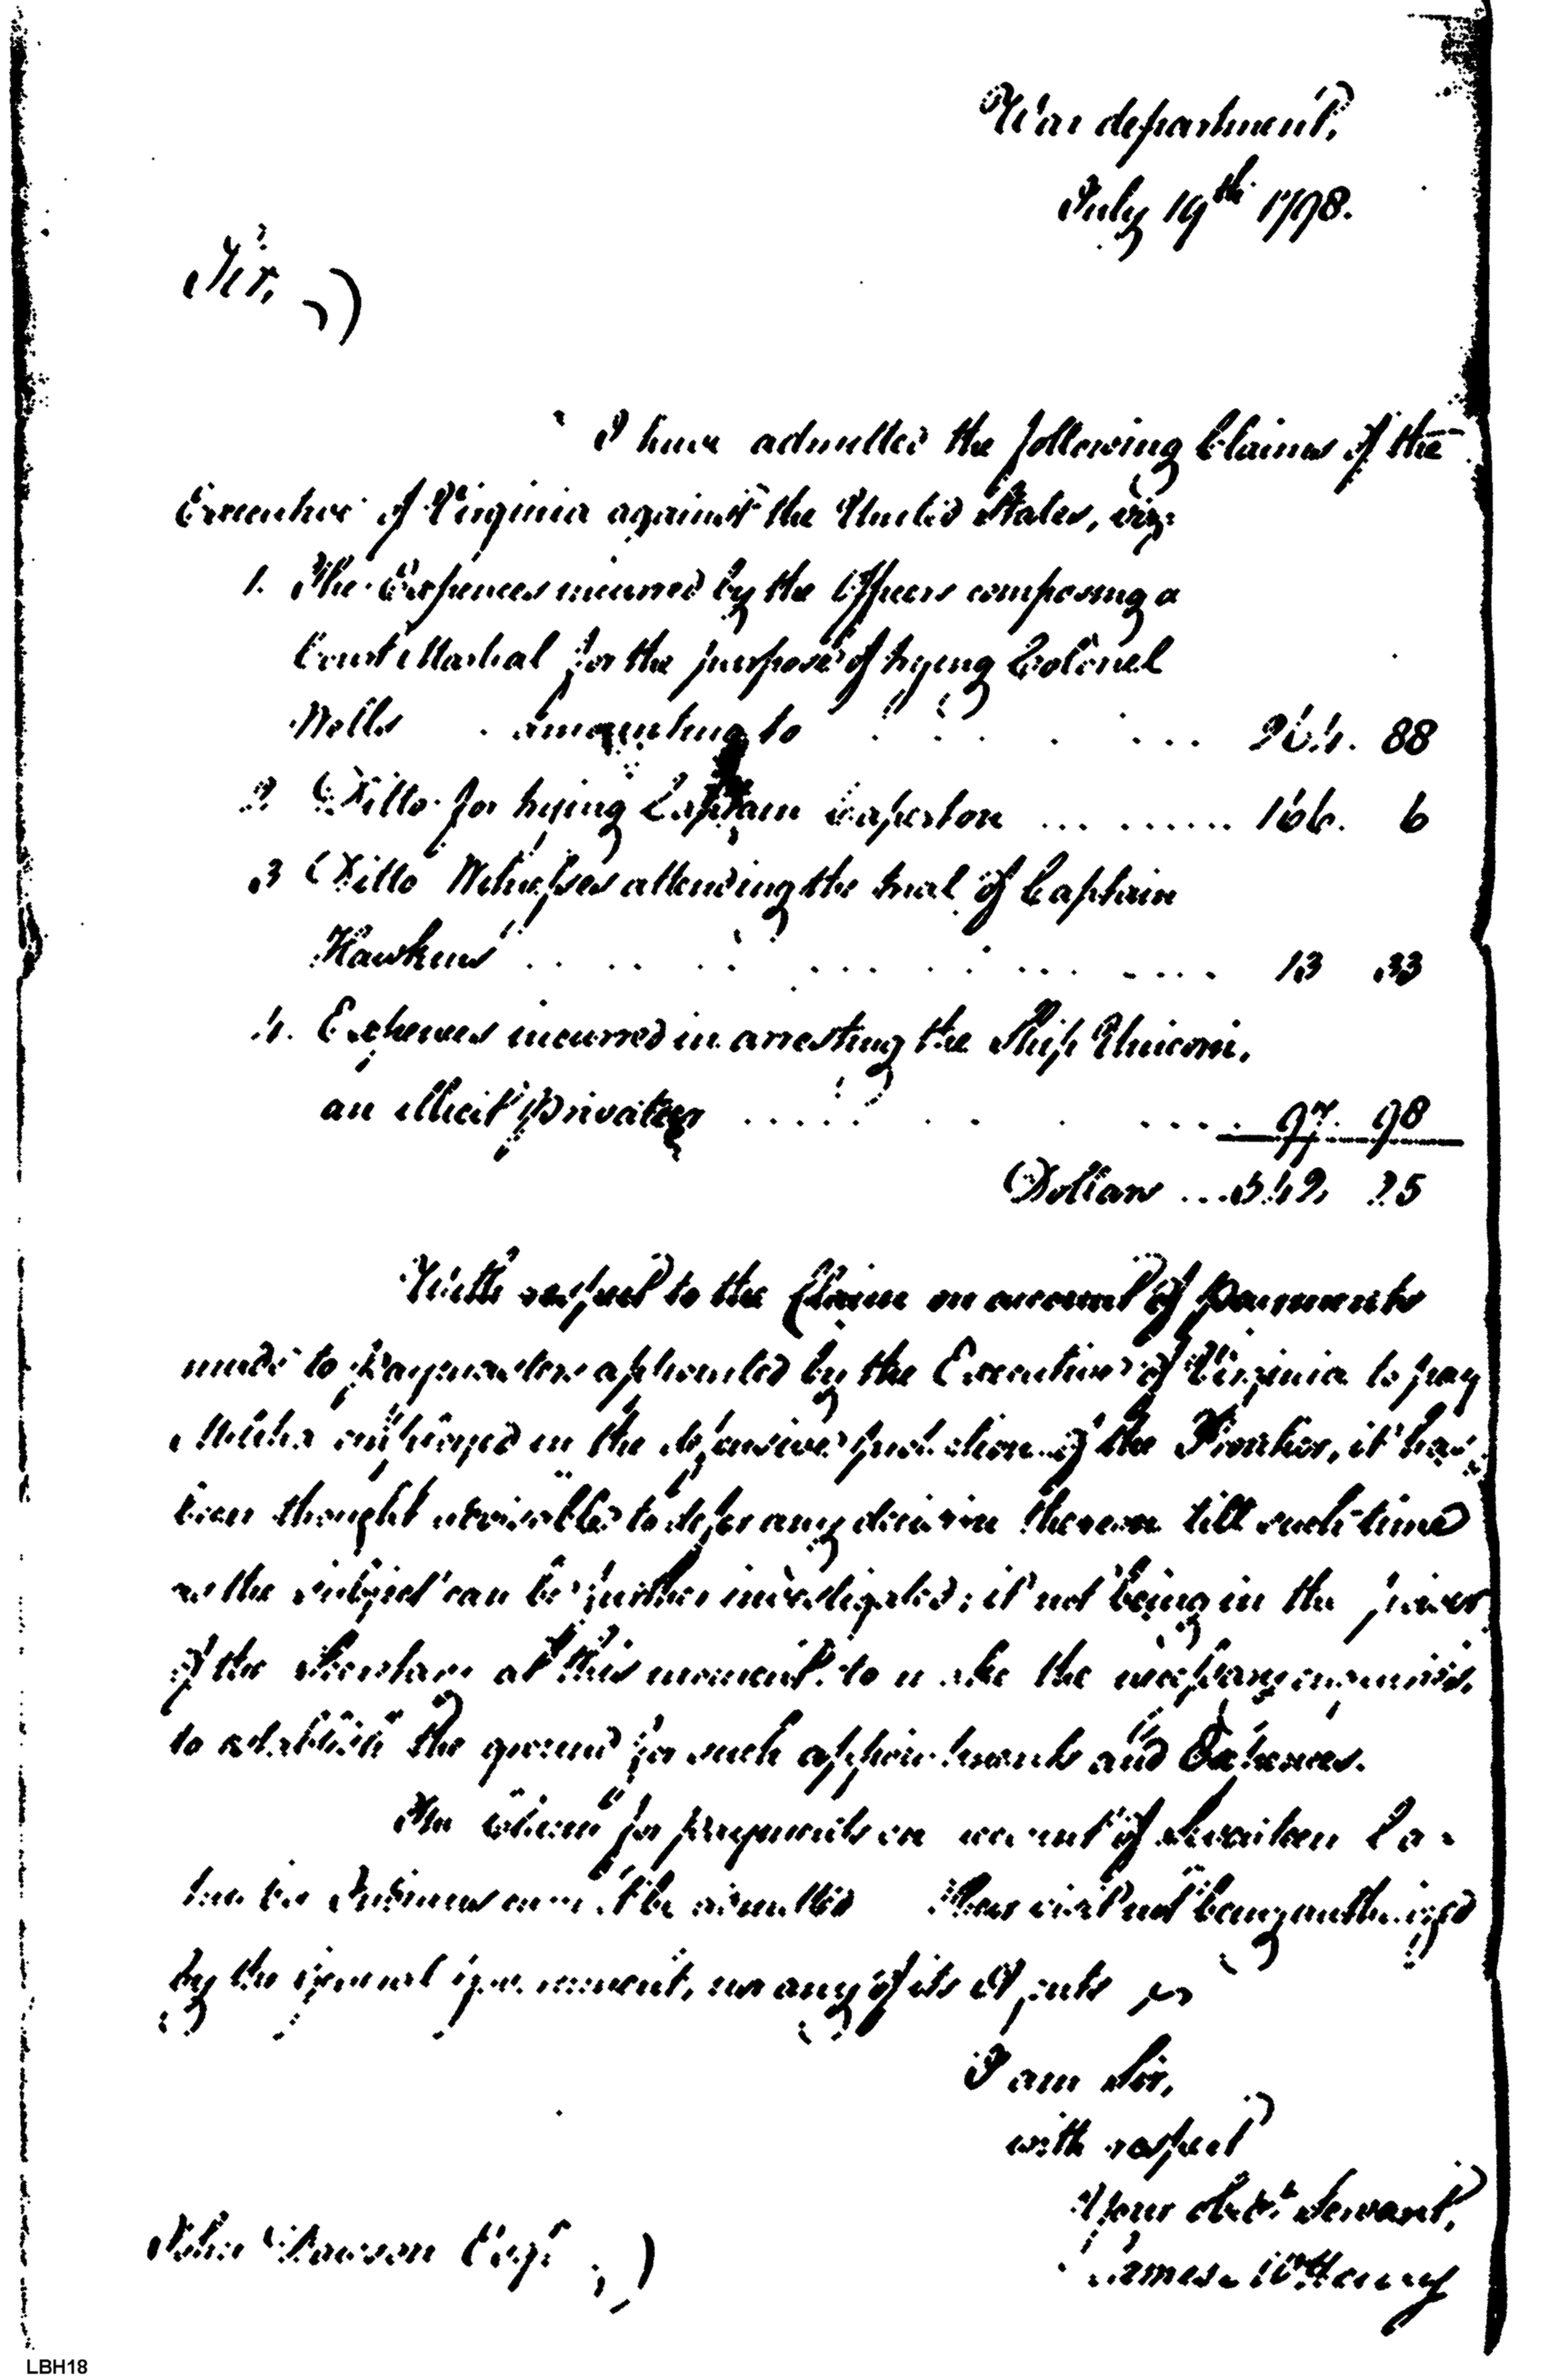 War department,
July 19th 1798.
Sir,
I have admitted the following Claims of the
Executive of Virginia against the United States, viz:
1. The Expences incurred by the Officers composing a
Court Martial for the purpose of trying Colonel
Wells amounting to 264. 88
2 Ditto for trying Captain Caperton ... ....... 166. 6
3 Ditto Witnesses attending the trial of Captain
Hawkins . . . . . . . . . . . . 13 33
4. Expences incurred in arresting the Ship Unicorn,
an illicit privateer ..... . . . .... 97. 98
Dollars ... 542. 25
With respect to the Claim on account of payments
made to paymasters appointed by the Executive of Virginia to pay
Militia employed in the defensive protection of the Frontier, it has
been thought adviseable to defer any decision thereon till such time
as the subject can be further investigated; it not being in the power
of the Secretary at this moment to make the necessary enquiries,
to establish the ground for such appointments and Expences.
The Claim for payments on account of seventeen Ca-
tawba Indians cannot be admitted Their visit not being authorized
by the general government, nor any of its Agents
I am Sir,
with respect
Your Obedt Servant,
James McHenry
John Dawson Esqr
LBH18